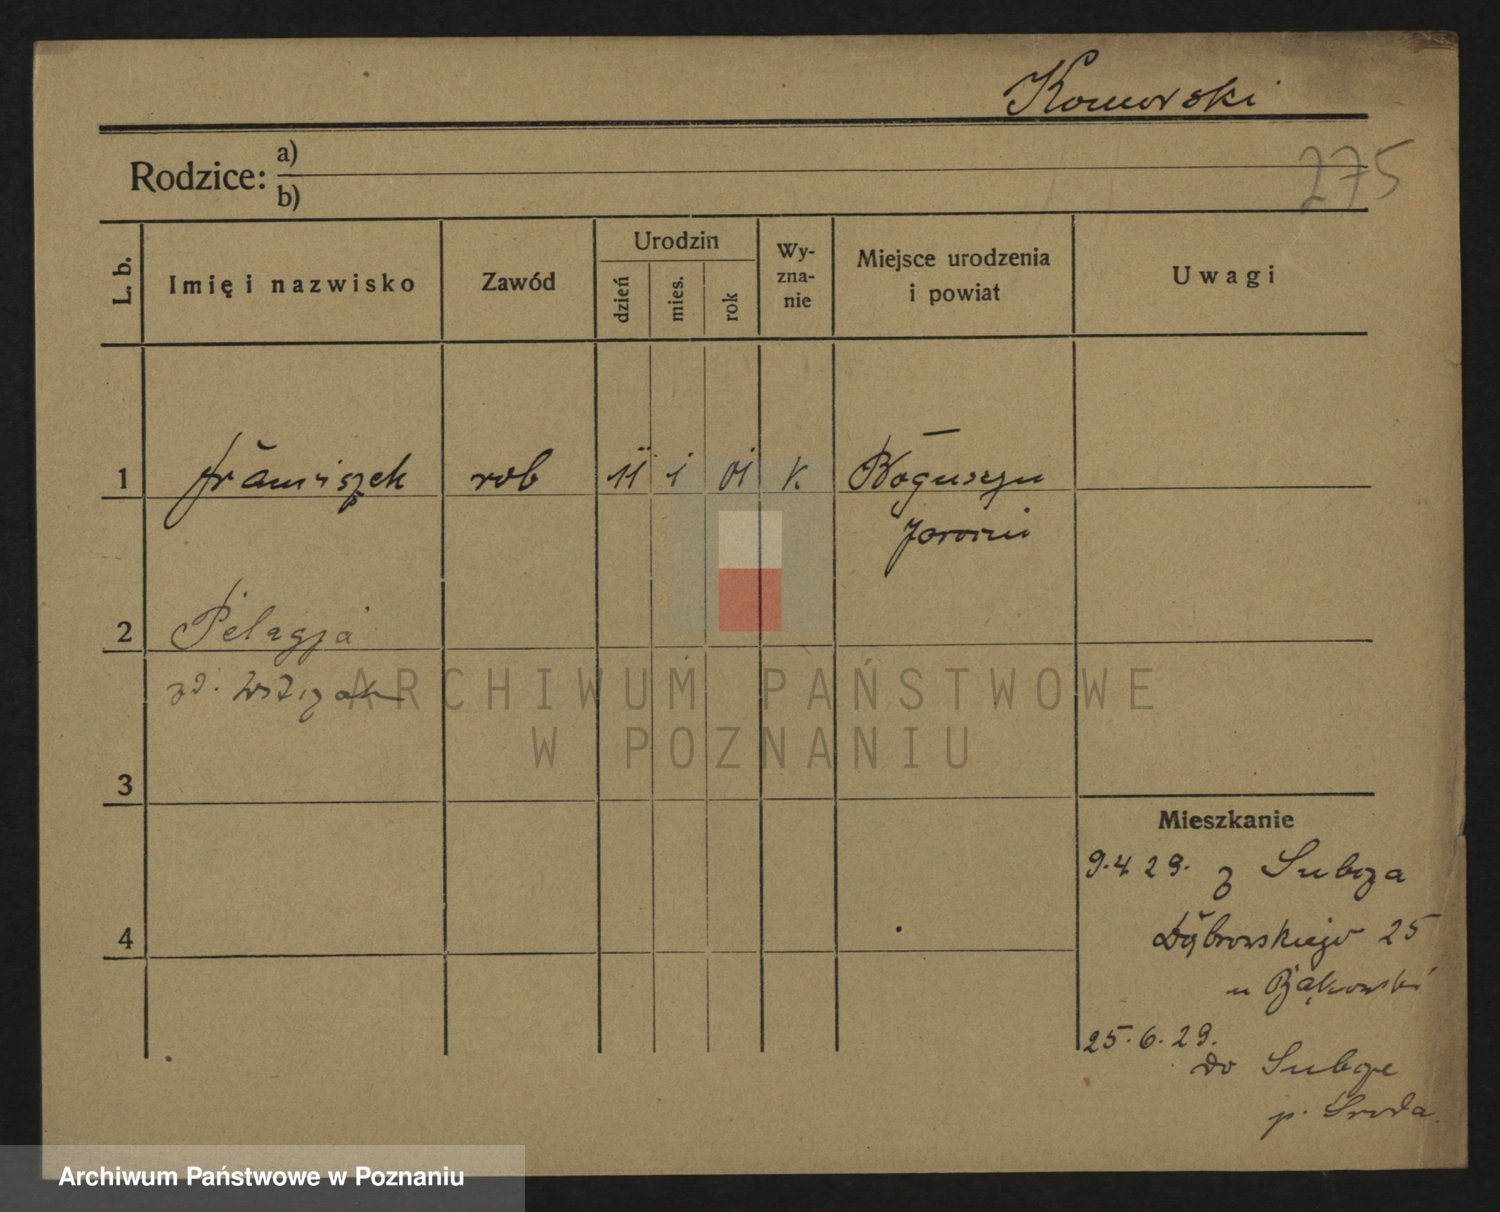 Komorski
275
Rodzice: a)
b)
L. b.
Imię i nazwisko
Zawód
Urodzin
dzień
mies.
rok
Wy-
zna-
nie
Miejsce urodzenia
i powiat
Uwagi
1 Franciszek rob 11 1 01 k. Boguszyn
Jarocin
2 Pelagja
ARCHIWUM PAŃSTWOWE
W POZNANIU
3
4
Mieszkanie
9.4 29. z
Dąbrowskiego 25
u Bąkowski
25.6.29.
do
p. Środa
Archiwum Państwowe w Poznaniu